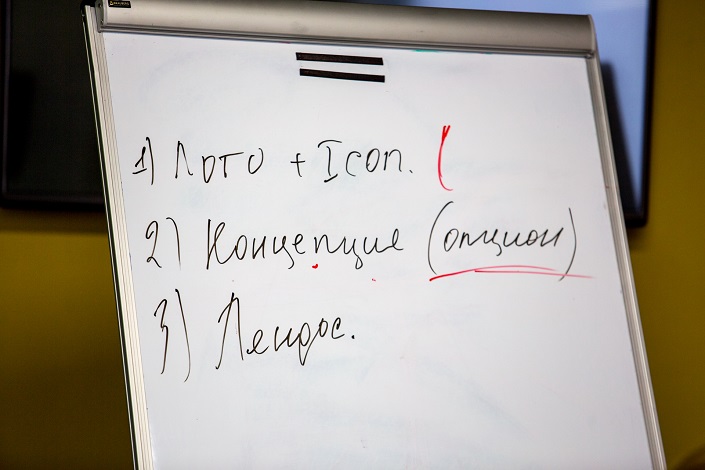 1) Лого + Icon. (
2) Концепция (опцион)
3) Лендос.